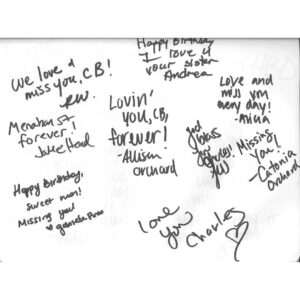 Happy Birthday
I love u
your sister
Andrea
We love &
miss you, CB!
RW.
Love and
miss you
every day!
Lovin'
you, CB,
forever!
-Allison
Orchard
Menahan St
forever!
God
bless
you
Missing
You!
-Catonia
Orchard
Happy Birthday,
sweet man!
Missing you!
Love
you
Charles